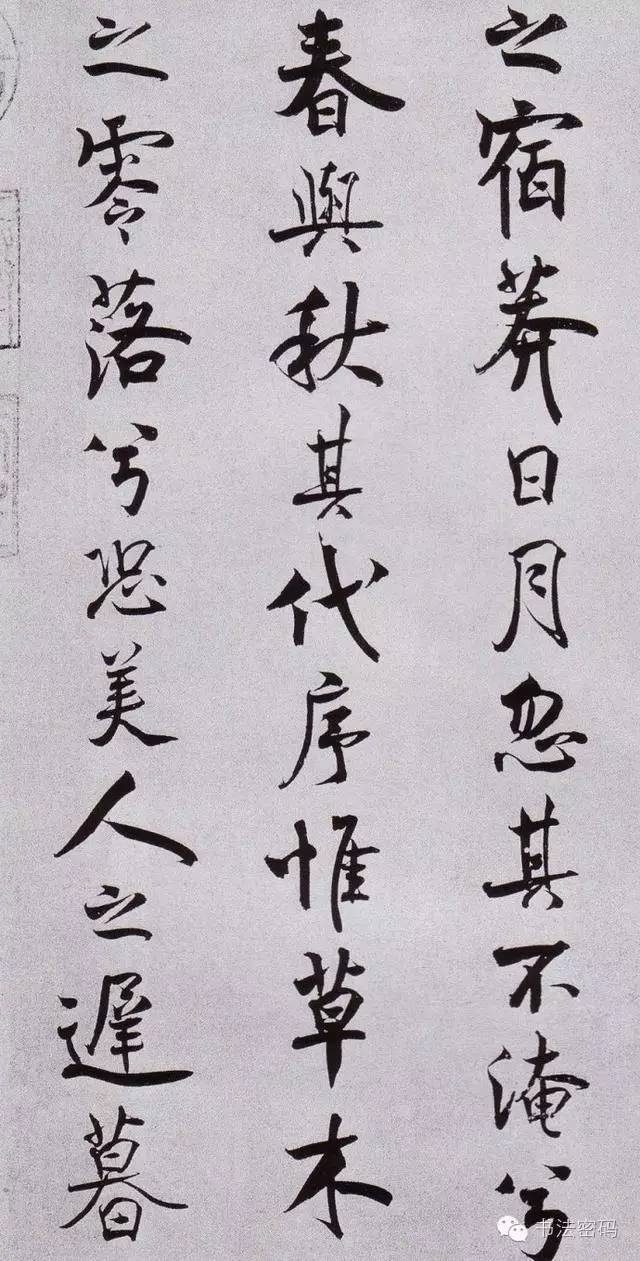 之宿莽日月忽其不淹兮
春與秋其代序惟草木
之零落兮恐美人之遲暮
书法密码